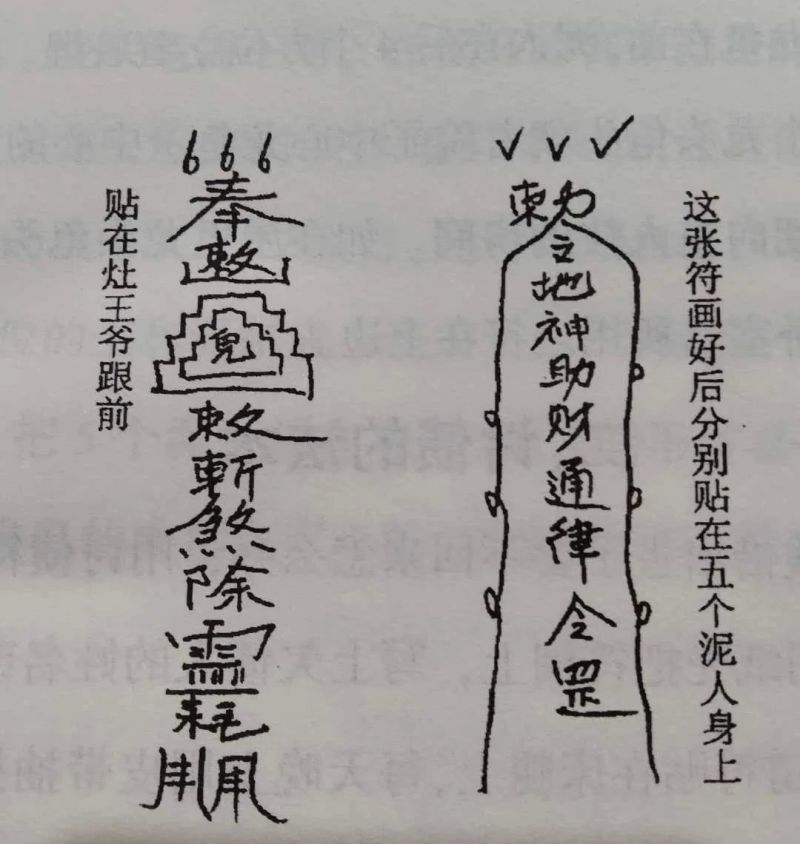 这张符画好后分别贴在五个泥人身上
勅令地神助财通律令罡
奉敕敕斬煞除
贴在灶王爷跟前